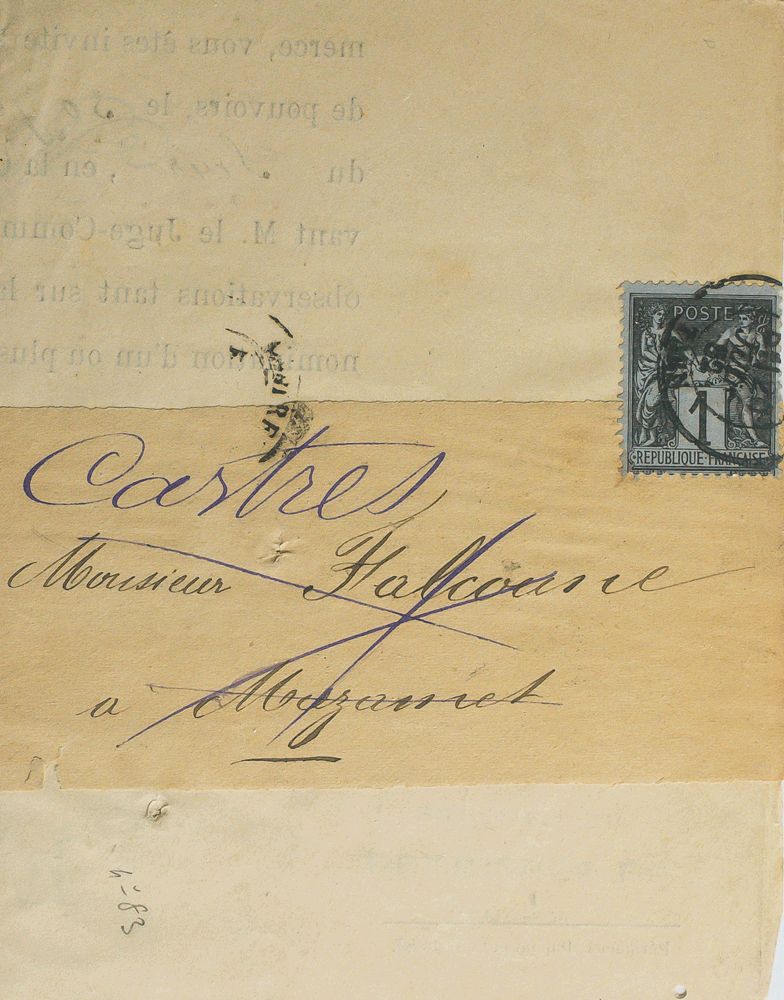 merce, vous êtes invité
de pouvoirs, le
du , en la
vant M. le Juge-Comm
observations tant sur la
nomination d'un ou plus
POSTE
1
REPUBLIQUE FRANÇAISE
Castres
Monsieur Falcoune
a Mazamet
4-83